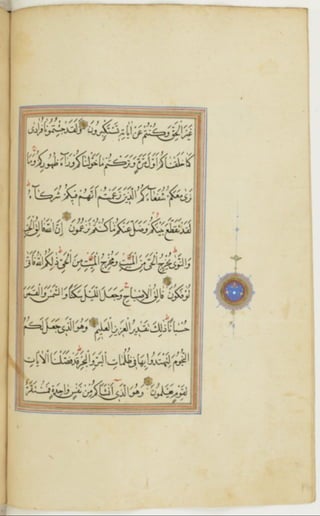 غَيْرَ الْحَقِّ وَكُنْتُمْ عَنْ اٰيَاتِهِ تَسْتَكْبِرُونَ وَلَقَدْ جِئْتُمُونَا فُرَادٰى
كَمَا خَلَقْنَاكُمْ اَوَّلَ مَرَّةٍ وَتَرَكْتُمْ مَا خَوَّلْنَاكُمْ وَرَاءَ ظُهُورِكُمْ وَمَا
نَرٰى مَعَكُمْ شُفَعَاءَكُمُ الَّذِينَ زَعَمْتُمْ اَنَّهُمْ فِيكُمْ شُرَكَاءُ
لَقَدْ تَقَطَّعَ بَيْنَكُمْ وَضَلَّ عَنْكُمْ مَا كُنْتُمْ تَزْعُمُونَ اِنَّ اللّٰهَ فَالِقُ الْحَبِّ
وَالنَّوٰى يُخْرِجُ الْحَيَّ مِنَ الْمَيِّتِ وَمُخْرِجُ الْمَيِّتِ مِنَ الْحَيِّ ذٰلِكُمُ اللّٰهُ فَاَنّٰى
تُؤْفَكُونَ فَالِقُ الْاِصْبَاحِ وَجَعَلَ اللَّيْلَ سَكَنًا وَالشَّمْسَ وَالْقَمَرَ
حُسْبَانًا ذٰلِكَ تَقْدِيرُ الْعَزِيزِ الْعَلِيمِ وَهُوَ الَّذِي جَعَلَ لَكُمُ
النُّجُومَ لِتَهْتَدُوا بِهَا فِي ظُلُمَاتِ الْبَرِّ وَالْبَحْرِ قَدْ فَصَّلْنَا الْاٰيَاتِ
لِقَوْمٍ يَعْلَمُونَ وَهُوَ الَّذِي اَنْشَاَكُمْ مِنْ نَفْسٍ وَاحِدَةٍ فَمُسْتَقَرٌّ